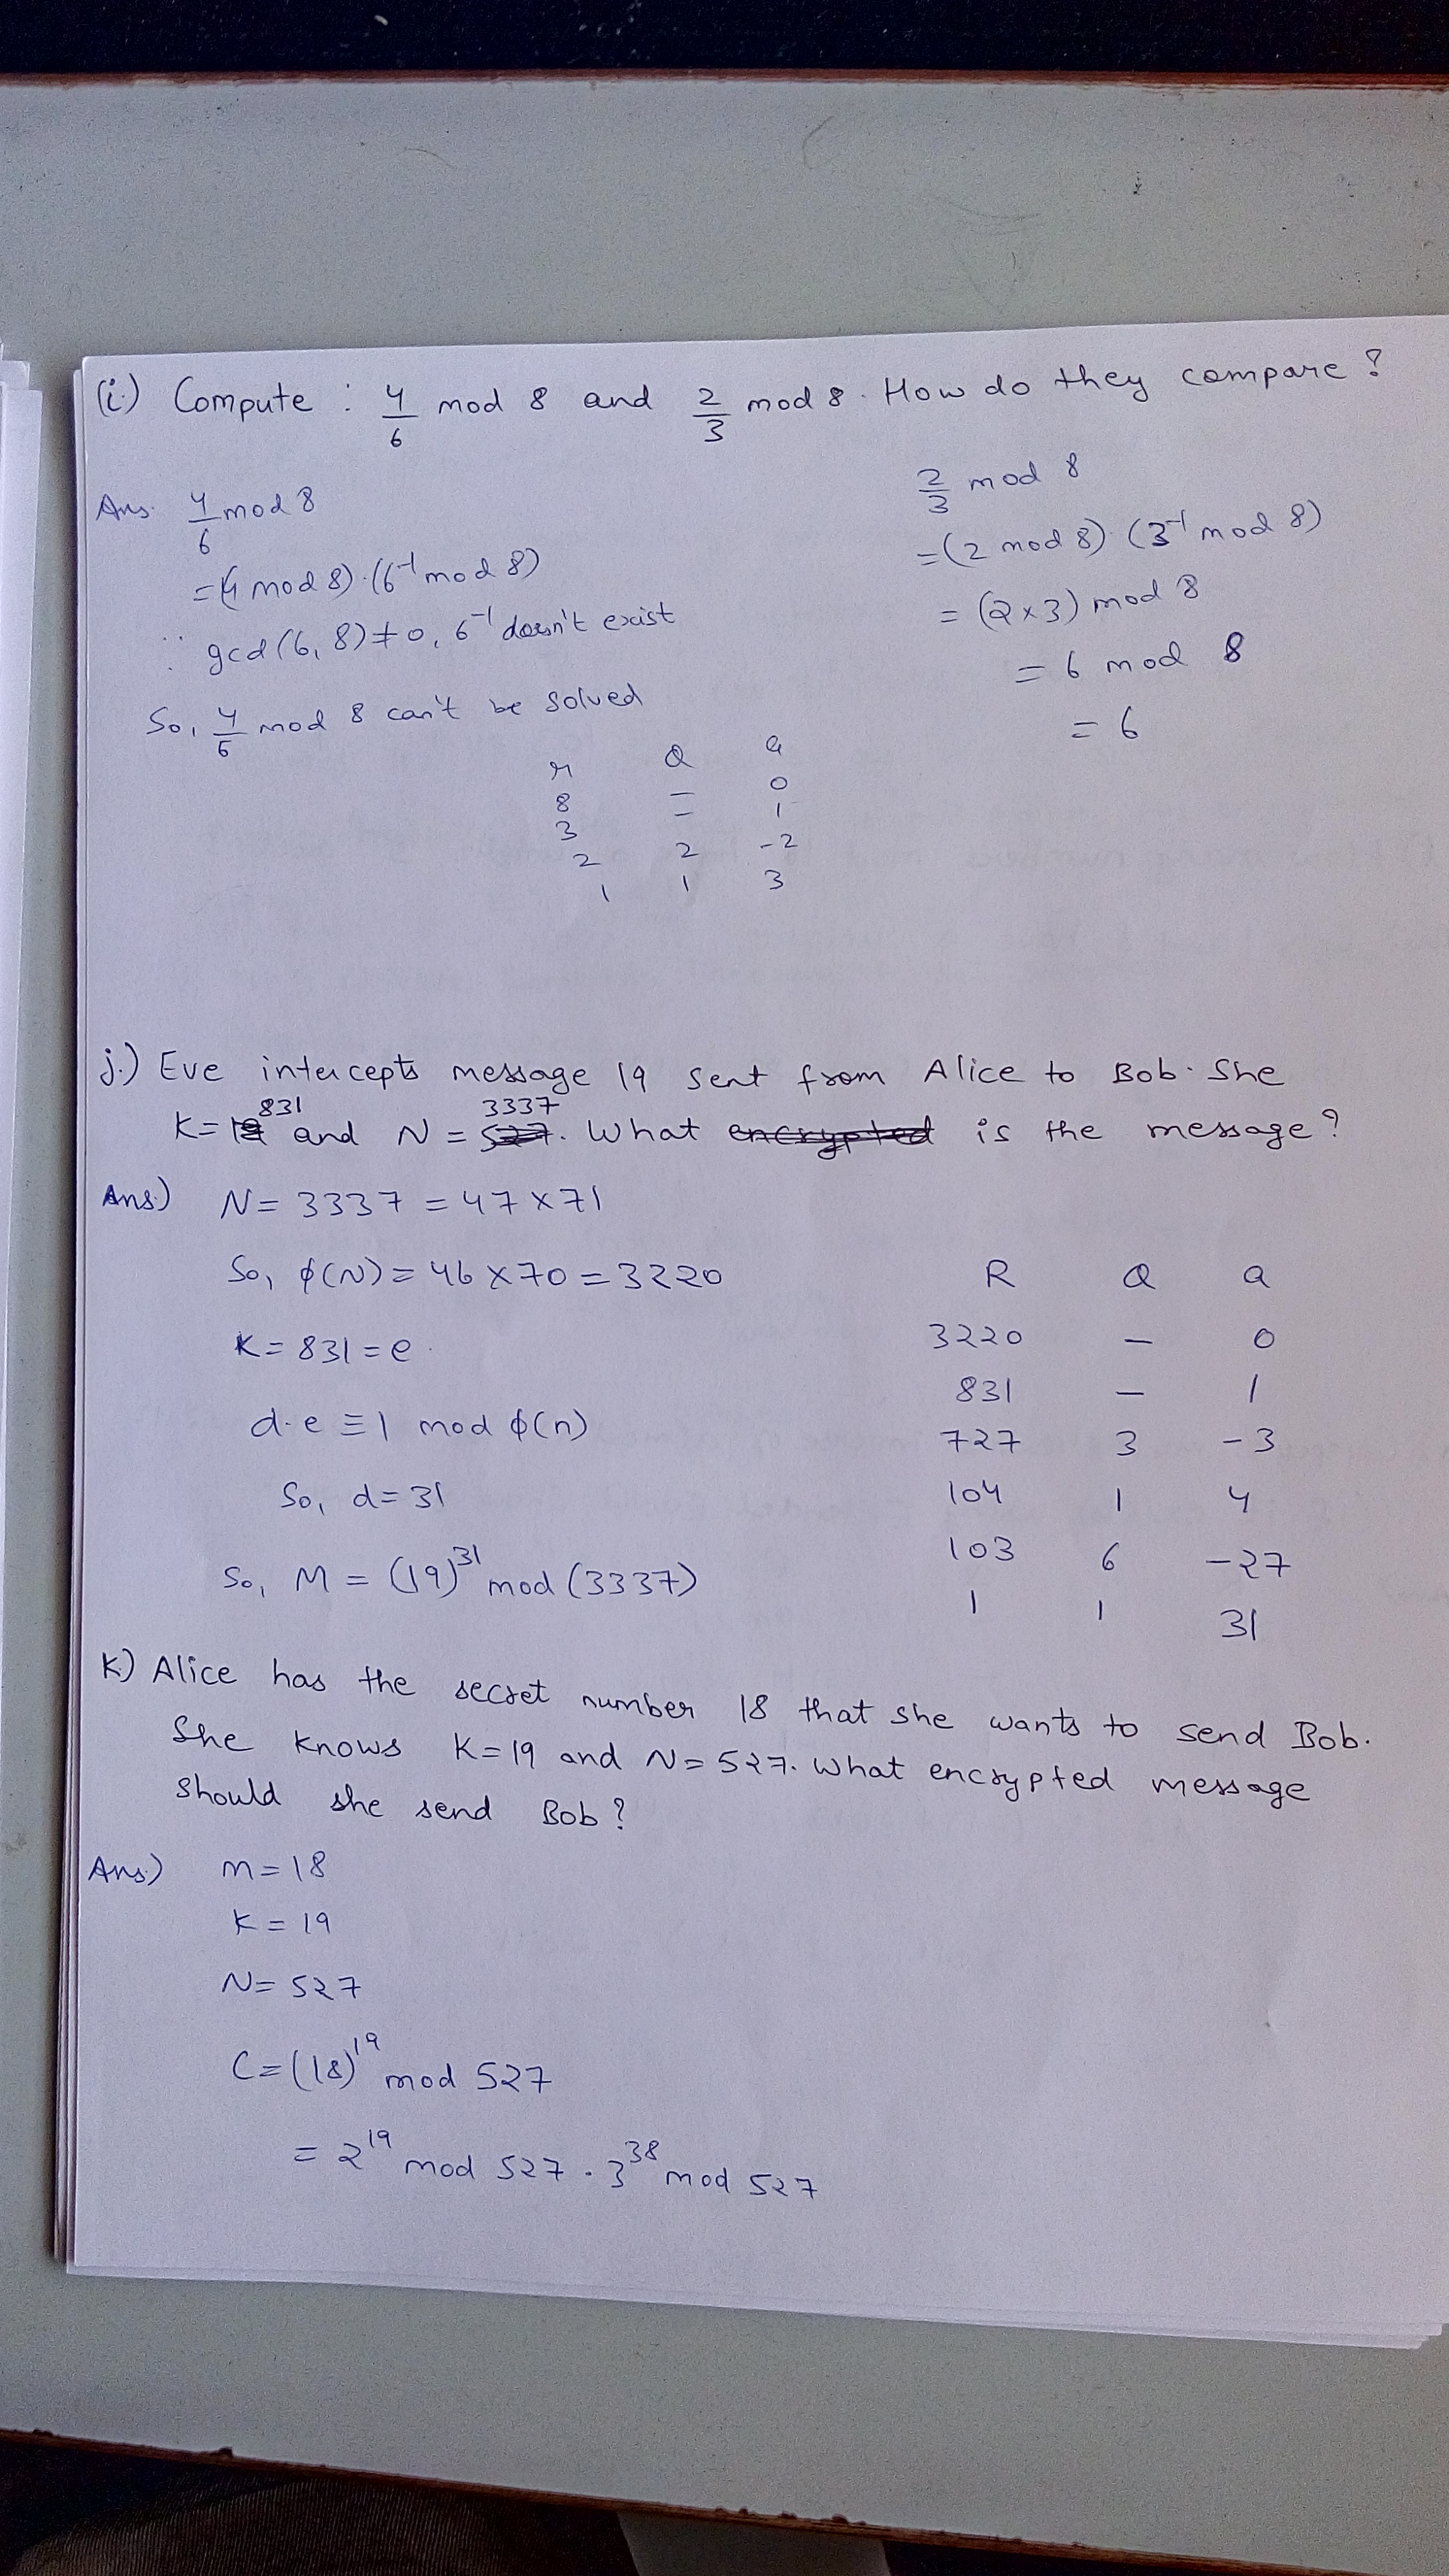 (i.) Compute : 4/6 mod 8 and 2/3 mod 8. How do they compare?
Ans. 4/6 mod 8
= (4 mod 8).(6⁻¹ mod 8)
∵ gcd(6, 8) ≠ 0, 6⁻¹ doesn't exist
So, 4/6 mod 8 can't be solved
2/3 mod 8
= (2 mod 8).(3⁻¹ mod 8)
= (2 × 3) mod 8
= 6 mod 8
= 6
r Q a
8 — 0
3 — 1
2 2 -2
1 1 3
j.) Eve intercepts message 19 sent from Alice to Bob. She
K = 831 and N = 3337. What encrypted is the message?
Ans.) N = 3337 = 47 × 71
So, ϕ(N) = 46 × 70 = 3220
K = 831 = e.
d.e ≡ 1 mod ϕ(n)
So, d = 31
So, M = (19)³¹ mod (3337)
R Q a
3220 — 0
831 — 1
727 3 -3
104 1 4
103 6 -27
1 1 31
K) Alice has the secret number 18 that she wants to send Bob.
She knows K = 19 and N = 527. What encrypted message
should she send Bob?
Ans.) m = 18
K = 19
N = 527
C = (18)¹⁹ mod 527
= 2¹⁹ mod 527 . 3³⁸ mod 527